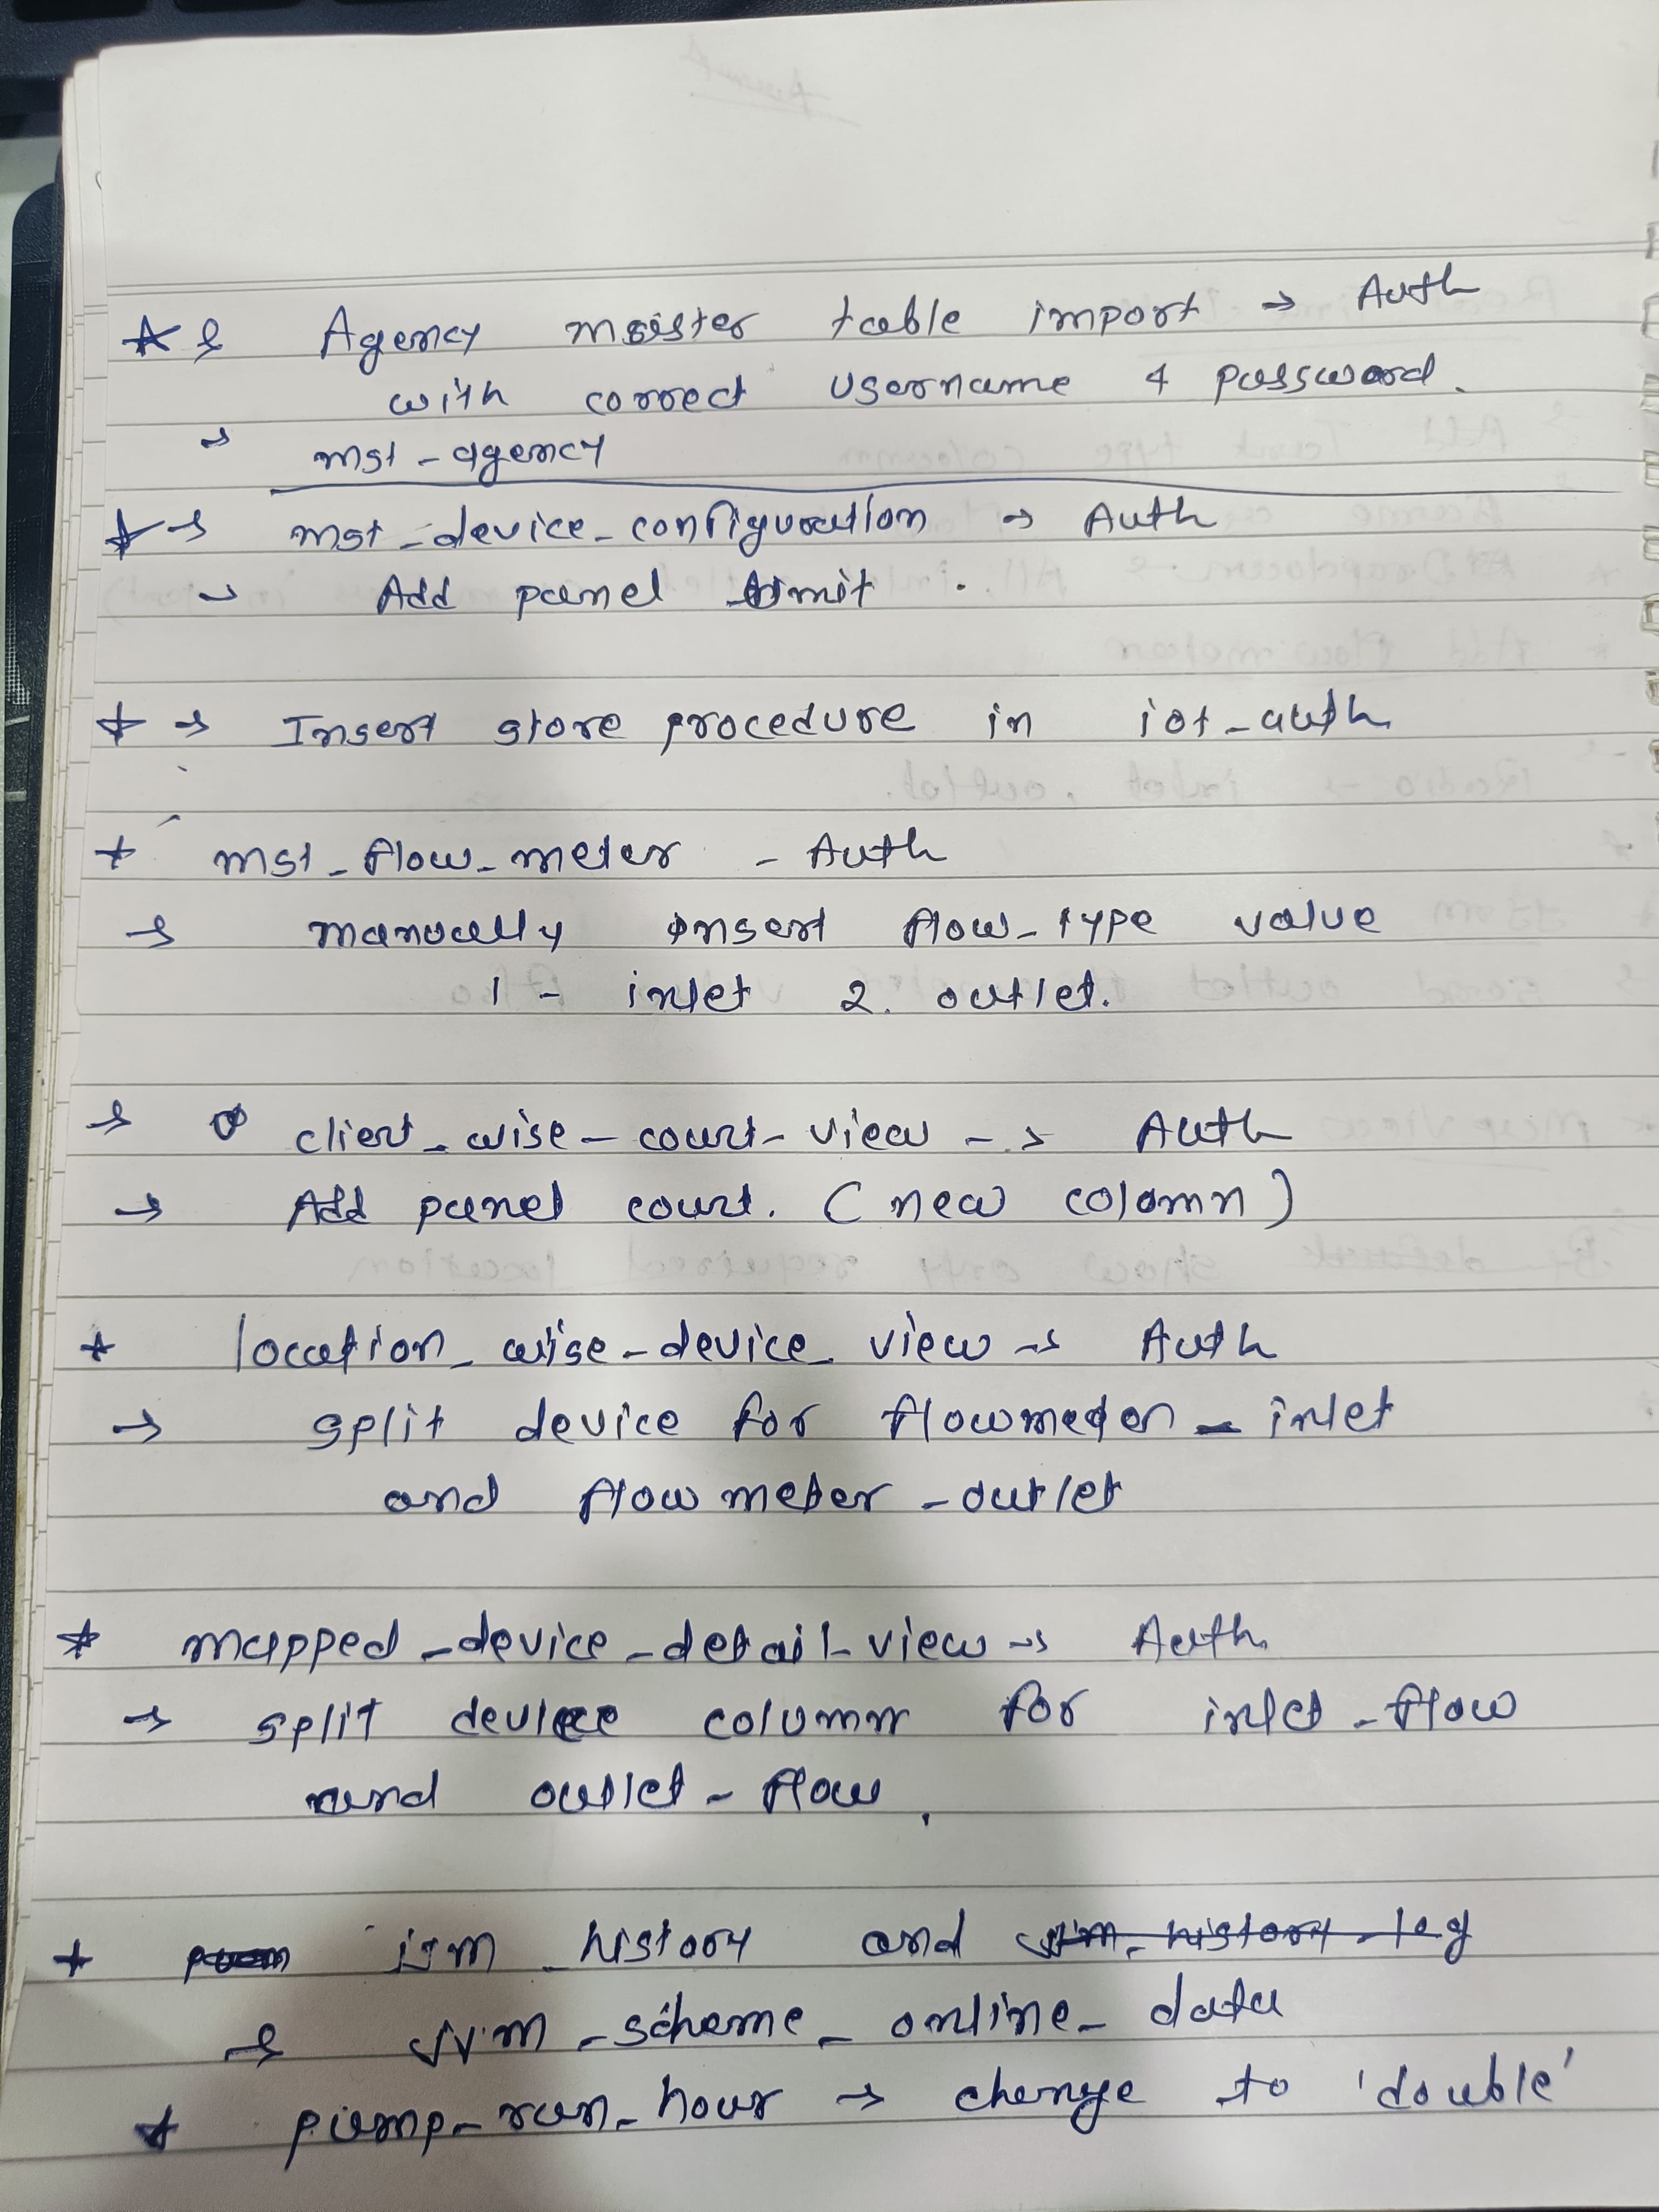 ★ → Agency master table import → Auth
with correct username & password.
→ mst_agency
★ → mst_device_configuration → Auth
→ Add panel limit.
★ → Insert store procedure in iot_auth
★ mst_flow_meter - Auth
→ manually insert flow_type value
1 - inlet 2. outlet.
→ client_wise_count_view --> Auth
→ Add panel count. (new colomn)
★ location_wise_device_view → Auth
→ split device for flowmeter_inlet
and flowmeter_outlet
★ mapped_device_detail_view → Auth
→ split device column for inlet_flow
and outlet_flow.
★ jjm_history and jjm_history_log
→ jjm_scheme_online_data
★ pump_run_hour → change to 'double'